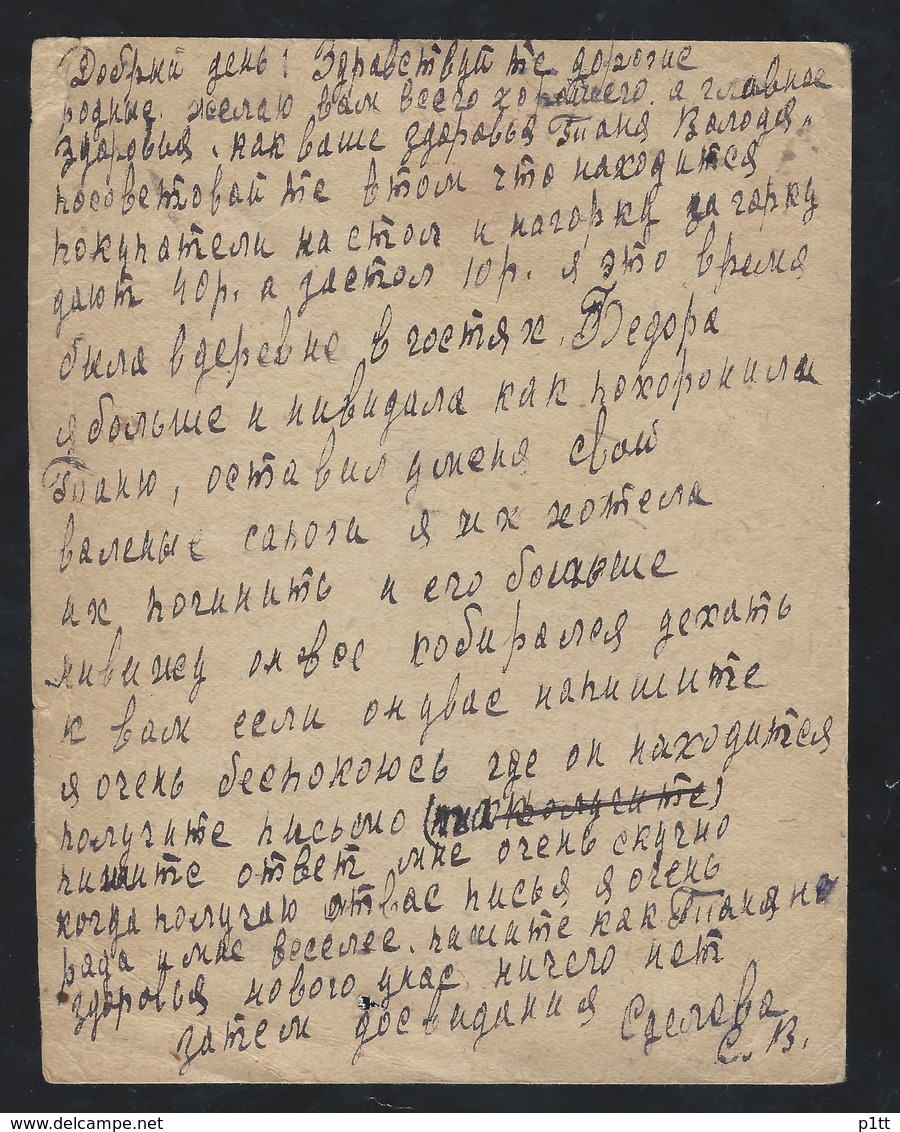 Добрый день! Здравствуй те дорогие
родные. желаю вам всего хорошего. а главное
Здоровья. как ваше здоровья Таня Валодя,
посоветовай те втом что находится
покупатели настол и нагорку загорку
дают 40р. а застол 10р. я это время
была вдеревне в гостях. Федора
я больше и нивидала как похоронила
Таню, оставил уменя свои
валеные сапоги я их хотела
их починить и его больше
нивижу онвсе собирался уехать
к вам если онувас напишите
я очень беспокоюсь где он находится
получите письмо
пишите ответ мне очень скучно
когда получаю отвас писья я очень
рада и мне веселее. пишите как Таня на
здоровья нового унас ничего нет
затем досвидания
С. В.
www.delcampe.net
p1tt